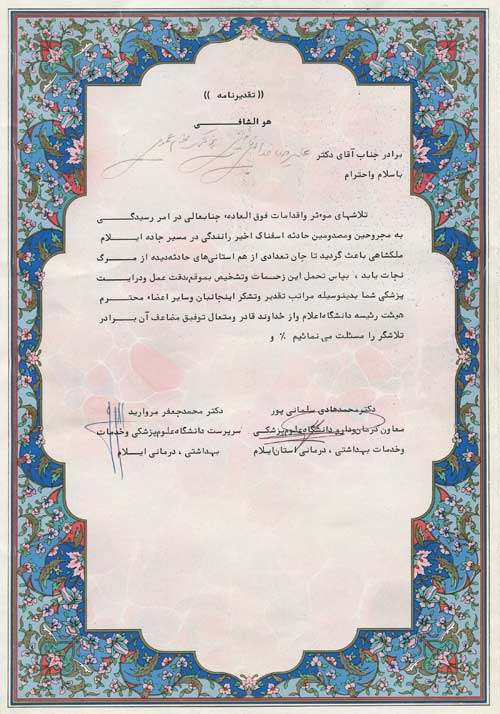 (( تقدیرنامه ))
هو الشافی
برادر جناب آقای دکتر
باسلام واحترام
تلاشهای موءثر واقدامات فوق العاده جنابعالی در امر رسیدگی
به مجروحین ومصدومین حادثه اسفناک اخیر رانندگی در مسیر جاده ایلام
ملکشاهی باعث گردید تا جان تعدادی از هم استانی‌های حادثه‌دیده از مرگ
نجات یابد ، بپاس تحمل این زحمات وتشخیص بموقع،دقت عمل ودرایت
پزشکی شما بدینوسیله مراتب تقدیر وتشکر اینجانبان وسایر اعضاء محترم
هیئت رئیسه دانشگاه‌اعلام واز خداوند قادر ومتعال توفیق مضاعف آن برادر
تلاشگر را مسئلت می نمائیم ٪ و
دکترمحمدهادی سلمانی پور
معاون درمان‌ودارو دانشگاه‌علوم‌پزشکی
وخدمات بهداشتی ، درمانی استان‌ایلام
دکتر محمدجعفر مروارید
سرپرست دانشگاه‌علوم‌پزشکی وخدمات
بهداشتی ، درمانی ایلام